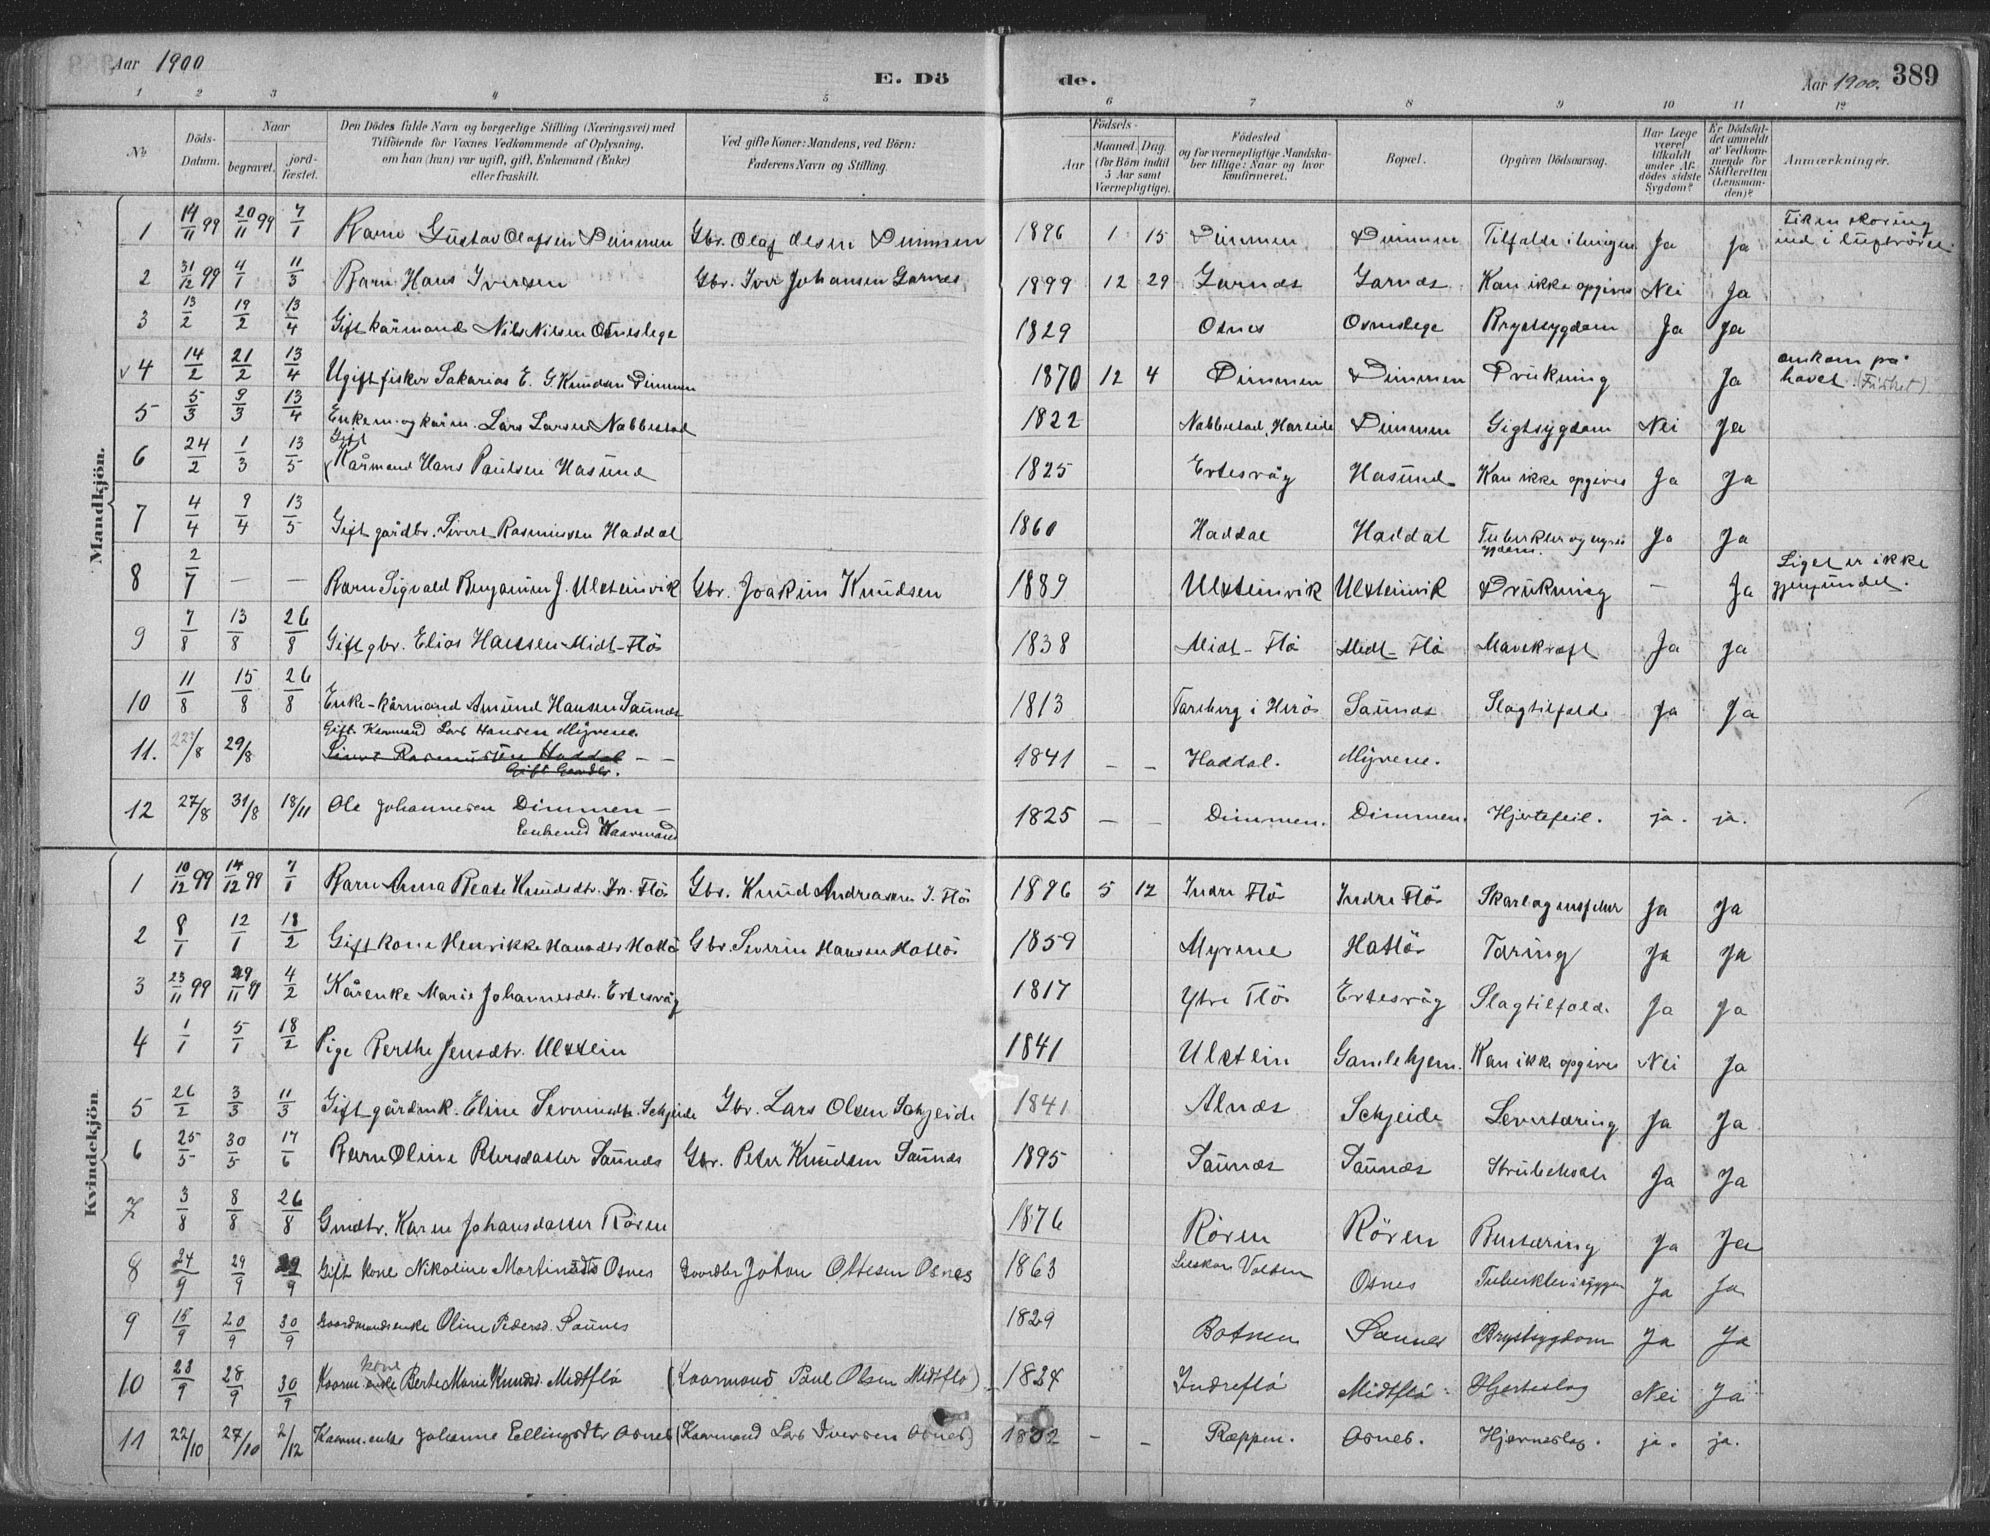 Aar 1900
E. Dö
de.
Aar 1900. 389
1 2 3 4 5 6 7 8 9 10 11 12
No
Döds-Datum.
Naar
begravet. jord-fæstet.
Den Dödes fulde Navn og borgerlige Stilling (Næringsvei) med
Tilföiende for Voxnes Vedkommende af Oplysning,
om han (hun) var ugift, gift, Enkemand (Enke)
eller fraskilt.
Ved gifte Koner: Mandens, ved Börn:
Faderens Navn og Stilling.
Födsels-
Aar Maaned. Dag.
(for Börn indtil 5 Aar samt Værnepligtige).
Födested
og for værnepligtige Mandska-
ber tillige: Naar og hvor
konfirmeret.
Bopæl.
Opgiven Dödsaarsag.
Har Læge været tilkaldt under Afdödes sidste Sygdom?
Er Dödsfaldet anmeldt af Vedkommende for Skifteretten (Lensmanden)?
Anmærkninger.
Mandkjön.
1 14/11 99 20/11 99 7/1 Barn Gustav Olafsen Dimmen Gbr. Olaf Olsen Dimmen 1896 1 15 Dimmen Dimmen Tilfælde i lungen Ja Ja Fik en skoring ind i luftröret
2 31/12 99 4/1 11/3 Barn Hans Iversen Gbr. Iver Johansen Garnes 1899 12 29 Garnæs Garnæs Kan ikke opgives Nei Ja
3 13/2 19/2 13/4 Gift kårmand Nils Nilsen Osneslege 1829 Osnes Osneslege Brystsygdom Ja Ja
v 4 14/2 21/2 13/4 Ugift fisker Sakarias E. G. Knudsen Dimmen 1870 12 4 Dimmen Dimmen Drukning Ja omkom på havet.
5 5/3 9/3 13/4 Enkem. og kårm. Lars Larsen Nabbestad 1822 Nabbestad, Hareide Dimmen Gigtsygdom Nei Ja
6 24/2 1/3 13/5 Gift Kårmand Hans Paulsen Hasund 1825 Ertesvåg Hasund Kan ikke opgives Ja Ja
7 4/4 9/4 13/5 Gift gårdbr. Sivert Rasmussen Haddal 1860 Haddal Haddal Ja Ja
8 2/7 — — Barn Sigvald Benjamin J. Ulsteinvik Gbr. Joakim Knudsen 1889 Ulsteinvik Ulsteinvik Drukning — Ja Liget er ikke gjenfundet.
9 7/8 13/8 26/8 Gift gbr. Elias Hansen Midt-Flö 1838 Midt-Flö Midt-Flö Mavekræft Ja Ja
10 11/8 15/8 26/8 Enke-kårmand Amund Hansen Saunæs 1813 Tarberg i Herö Saunæs Slagtilfælde Ja Ja
11. /8 29/8 Gift Kaarmand Lars Hansen Myrene. Sivert Rasmussen Haddal — — Gift Gaardbr. 1841 — — Haddal. Myrene.
12 27/8 31/8 18/11 Ole Johannesen Dimmen — Enkemd Kaarmand 1825 — — Dimmen. Dimmen. Hjertefeil. ja. ja.
Kvindekjön
1 10/12 99 14/12 99 7/1 Barn Anna Beate Knudsdtr. In. Flö Gbr. Knud Andreassen I. Flö 1896 5 12 Indre Flö Indre Flö Skarlagensfeber Ja Ja
2 8/1 12/1 18/2 Gift kone Henrikke Hansdtr Hatlö Gbr. Severin Hansen Hatlö 1859 Myrene Hatlö Tæring Ja Ja
3 23/11 99 29/11 99 4/2 Kårenke Marie Johannesdtr. Ertesvåg 1817 Ytre Flö Ertesvåg Slagtilfælde Ja Ja
4 1/1 5/1 18/2 Pige Berthe Jensdtr. Ulstein 1841 Ulstein Gamlehjem. Kan ikke opgives Nei Ja
5 26/2 3/3 11/3 Gift gårdmk. Eline Severinsdtr. Schjeide Gbr. Lars Olsen Schjeide 1841 Alnæs Schjeide Levertæring Ja Ja
6 25/5 30/5 17/6 Barn Oline Petersdatter Saunæs Gbr. Peter Knudsen Saunæs 1895 Saunæs Saunæs Strubehoste Ja Ja
7 3/8 8/8 26/8 Gmdtr. Karen Johansdatter Rören 1876 Rören Rören Bentæring Ja Ja
8 24/9 29/9 29/9 Gift kone Nikoline Martinsdtr Osnes Gaardbr Johan Ottesen Osnes 1863 Volden Osnes Tuberkler i ryggen Ja Ja
9 15/9 20/9 30/9 Gaardmandsenke Oline Pedersd. Saunes 1829 Botnen Saunes Brystsygdom Ja Ja
10 23/9 28/9 30/9 Kaarm enke kone Berte Marie Knudsd. Midtflö (Kaarmand Paul Olsen Midtflö) 1824 Indreflö Midtflö Hjerteslag Nei Ja
11 22/10 27/10 2/12 Kaarm. enke Johanne Ellingsdtr Osnes (Kaarmand Lars Iversen Osnes) 1832 — — Ræppen. Osnes. Hjerneslag. ja. ja.